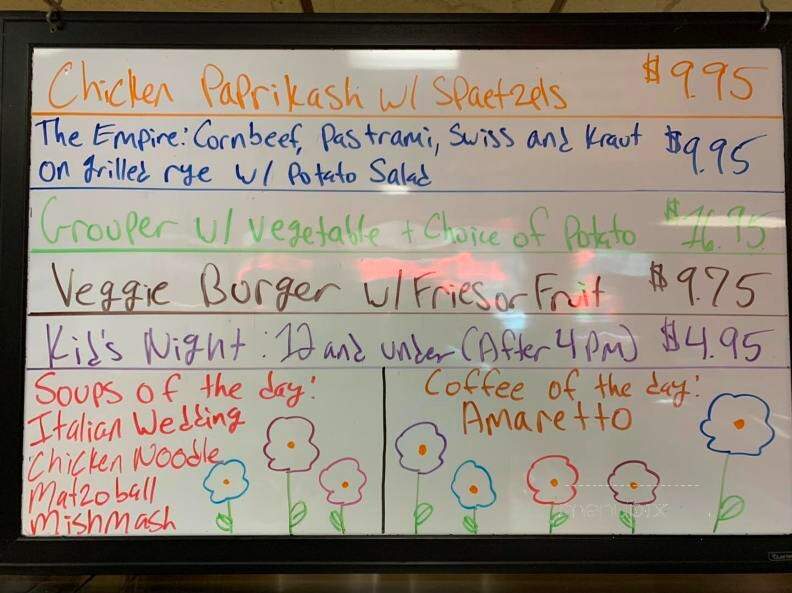 Chicken Paprikash w/ Spaetzels $9.95
The Empire: Cornbeef, Pastrami, Swiss and Kraut $9.95
on grilled rye w/ Potato Salad
Grouper w/ vegetable + Choice of Potato $16.95
Veggie Burger w/ Fries or Fruit $9.75
Kid's Night: 12 and under (After 4 PM) $4.95
Soups of the day:
Italian Wedding
Chicken Noodle
Matzoball
Mishmash
Coffee of the day:
Amaretto
menupix